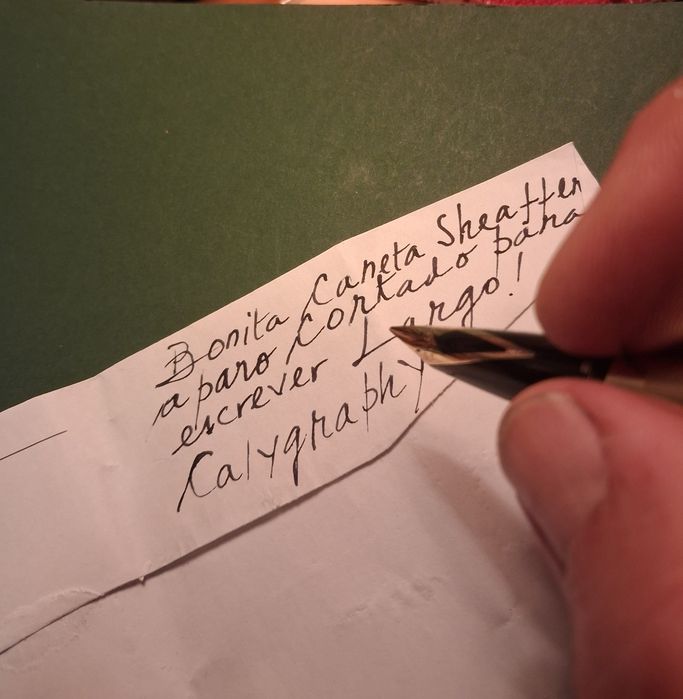 Bonita Caneta Sheaffer
aparo Cortado para
escrever Largo!
Calygraphy